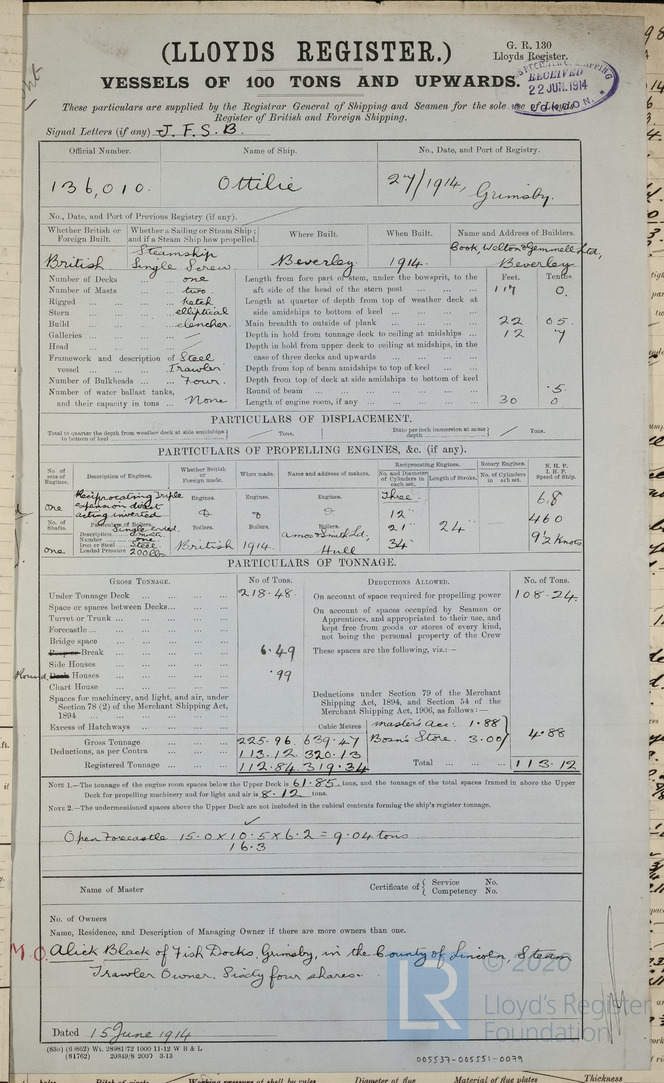 (LLOYDS REGISTER.)
G. R. 130
Lloyds Register.
VESSELS OF 100 TONS AND UPWARDS.
RECEIVED
22 JUN. 1914
LONDON.
These particulars are supplied by the Registrar General of Shipping and Seamen for the sole use of Lloyds
Register of British and Foreign Shipping.
Signal Letters (if any) J. F. S. B.
Official Number. Name of Ship. No., Date, and Port of Registry.
136,010. Ottilie 27/1914, Grimsby.
No., Date, and Port of Previous Registry (if any).
Whether British or Foreign Built. Whether a Sailing or Steam Ship; and if a Steam Ship how propelled. Where Built. When Built. Name and Address of Builders.
British Steamship Single Screw Beverley 1914. Cook, Welton & Gemmell Ltd, Beverley
Number of Decks ... one
Number of Masts ... two
Rigged ... ketch
Stern ... elliptical
Build ... clencher
Galleries ...
Head ...
Framework and description of vessel ... Steel Trawler
Number of Bulkheads ... Four.
Number of water ballast tanks, and their capacity in tons ... None
Feet. Tenths
Length from fore part of stem, under the bowsprit, to the aft side of the head of the stern post ... 117 0.
Length at quarter of depth from top of weather deck at side amidships to bottom of keel ...
Main breadth to outside of plank ... 22 05.
Depth in hold from tonnage deck to ceiling at midships ... 12 7
Depth in hold from upper deck to ceiling at midships, in the case of three decks and upwards ...
Depth from top of beam amidships to top of keel ...
Depth from top of deck at side amidships to bottom of keel
Round of beam ... .5.
Length of engine room, if any ... 30 0
PARTICULARS OF DISPLACEMENT.
Total to quarter the depth from weather deck at side amidships to bottom of keel Tons. Ditto per inch immersion at same depth Tons.
PARTICULARS OF PROPELLING ENGINES, &c. (if any).
No. of sets of Engines. Description of Engines. Whether British or Foreign made. When made. Name and address of makers. Reciprocating Engines. Rotary Engines. N. H. P. I. H. P. Speed of Ship.
No. and Diameter of Cylinders in each set. Length of Stroke. No. of Cylinders in each set.
One Reciprocating Triple expansion direct acting inverted Engines. Engines. Engines. Three 12" 21" 34" 24" 68 460 9½ Knots
No. of Shafts. Particulars of Boilers. Boilers. Boilers. Boilers.
Description Single ended
Number one
Iron or Steel Steel
one Loaded Pressure 200 lbs British 1914. Amos & Smith Ltd, Hull
PARTICULARS OF TONNAGE.
GROSS TONNAGE. No of Tons. DEDUCTIONS ALLOWED. No. of Tons.
Under Tonnage Deck ... 218.48. On account of space required for propelling power 108.24.
Space or spaces between Decks ...
Turret or Trunk ...
Forecastle ...
Bridge space ...
Break ... 6.49
Side Houses ...
Round Houses ... .99
Chart House ...
Spaces for machinery, and light, and air, under Section 78 (2) of the Merchant Shipping Act, 1894 ...
Excess of Hatchways ...
On account of spaces occupied by Seamen or Apprentices, and appropriated to their use, and kept free from goods or stores of every kind, not being the personal property of the Crew
These spaces are the following, viz.:—
Deductions under Section 79 of the Merchant Shipping Act, 1894, and Section 54 of the Merchant Shipping Act, 1906, as follows:—
Cubic Metres Master's acc: 1.88
Gross Tonnage ... 225.96. 639.47 Bosn's Store. 3.00 4.88
Deductions, as per Contra ... 113.12 320.13
Registered Tonnage ... 112.84 319.34 Total ... 113.12
NOTE 1.—The tonnage of the engine room spaces below the Upper Deck is 61.85 tons, and the tonnage of the total spaces framed in above the Upper
Deck for propelling machinery and for light and air is 8.12 tons.
NOTE 2.—The undermentioned spaces above the Upper Deck are not included in the cubical contents forming the ship's register tonnage.
Open Forecastle 15.0 x 10.5 x 6.2 = 9.04 tons
16.3
Name of Master Certificate of { Service No. Competency No.
No. of Owners
Name, Residence, and Description of Managing Owner if there are more owners than one.
M.O. Alick Black of Fish Docks, Grimsby, in the County of Lincoln, Steam
Trawler Owner. Sixty four shares.
Dated 15 June 1914
(83o) (6/862) Wt. 28981/72 1000 11-12 W B & L
(81762) 20349/8 2000 3-13
005537-005551-0079
© 2020
LR
Lloyd's Register
Foundation